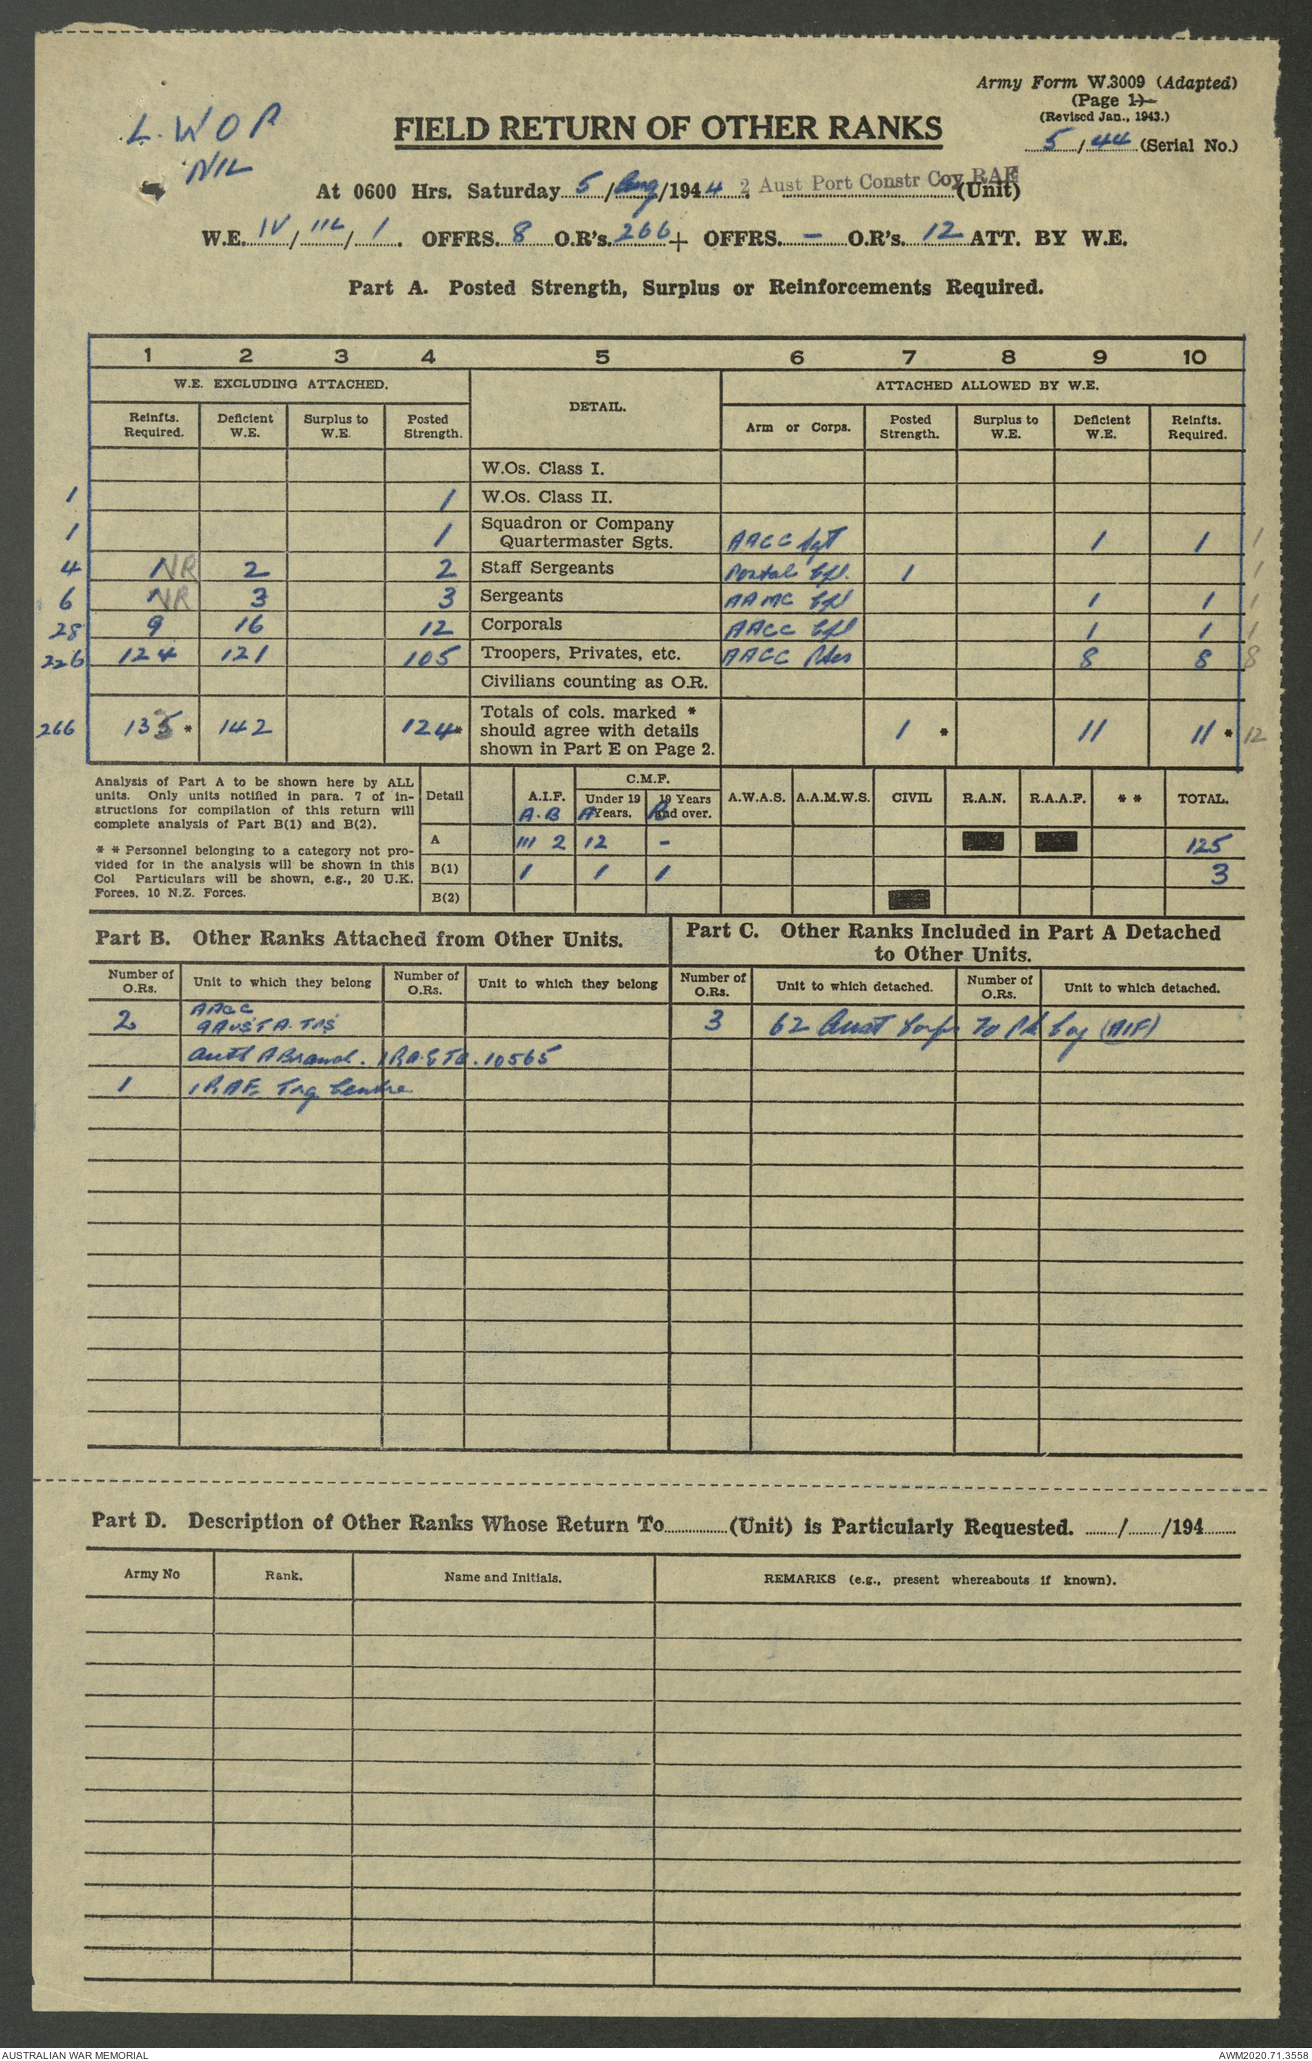 Army Form W.3009 (Adapted)
(Page 1)
(Revised Jan., 1943.)
5/44 (Serial No.)
L.WOP
NIL
FIELD RETURN OF OTHER RANKS
At 0600 Hrs. Saturday 5/Aug/1944. 2 Aust Port Constr Coy RAE (Unit)
W.E. IV/ /1. OFFRS. 8 O.R's. 266 + OFFRS. - O.R's. 12 ATT. BY W.E.
Part A. Posted Strength, Surplus or Reinforcements Required.
1 2 3 4 5 6 7 8 9 10
W.E. EXCLUDING ATTACHED. DETAIL. ATTACHED ALLOWED BY W.E.
Reinfts. Required. Deficient W.E. Surplus to W.E. Posted Strength. Arm or Corps. Posted Strength. Surplus to W.E. Deficient W.E. Reinfts. Required.
W.Os. Class I.
1 1 W.Os. Class II.
1 1 Squadron or Company Quartermaster Sgts. AACC Sgt 1 1 1
4 1 NR 2 2 Staff Sergeants Postal Cpl. 1 1
6 1 NR 3 3 Sergeants AAMC Cpl 1 1 1
28 9 16 12 Corporals AACC Cpl 1 1 1
226 124 121 105 Troopers, Privates, etc. AACC Ptes 8 8 8
Civilians counting as O.R.
266 135 * 142 124 * Totals of cols. marked * should agree with details shown in Part E on Page 2. 1 * 11 11 * 12
Analysis of Part A to be shown here by ALL
units. Only units notified in para. 7 of in-
structions for compilation of this return will
complete analysis of Part B(1) and B(2).
* * Personnel belonging to a category not pro-
vided for in the analysis will be shown in this
Col Particulars will be shown, e.g., 20 U.K.
Forces, 10 N.Z. Forces.
Detail A.I.F. C.M.F. Under 19 Years. 19 Years and over. A.W.A.S. A.A.M.W.S. CIVIL R.A.N. R.A.A.F. * * TOTAL.
A.B A B
A 111 2 12 - 125
B(1) 1 1 1 3
B(2)
Part B. Other Ranks Attached from Other Units.
Part C. Other Ranks Included in Part A Detached
to Other Units.
Number of O.Rs. Unit to which they belong Number of O.Rs. Unit to which they belong Number of O.Rs. Unit to which detached. Number of O.Rs. Unit to which detached.
2 AACC
9 AUST A. TPS
3 62 Aust Corps Tp Pk Coy (AIF)
Auth A Branch. 10565
1 1 RAE Trg Centre
Part D. Description of Other Ranks Whose Return To (Unit) is Particularly Requested. / /194
Army No Rank. Name and Initials. REMARKS (e.g., present whereabouts if known).
AUSTRALIAN WAR MEMORIAL
AWM2020.71.3558